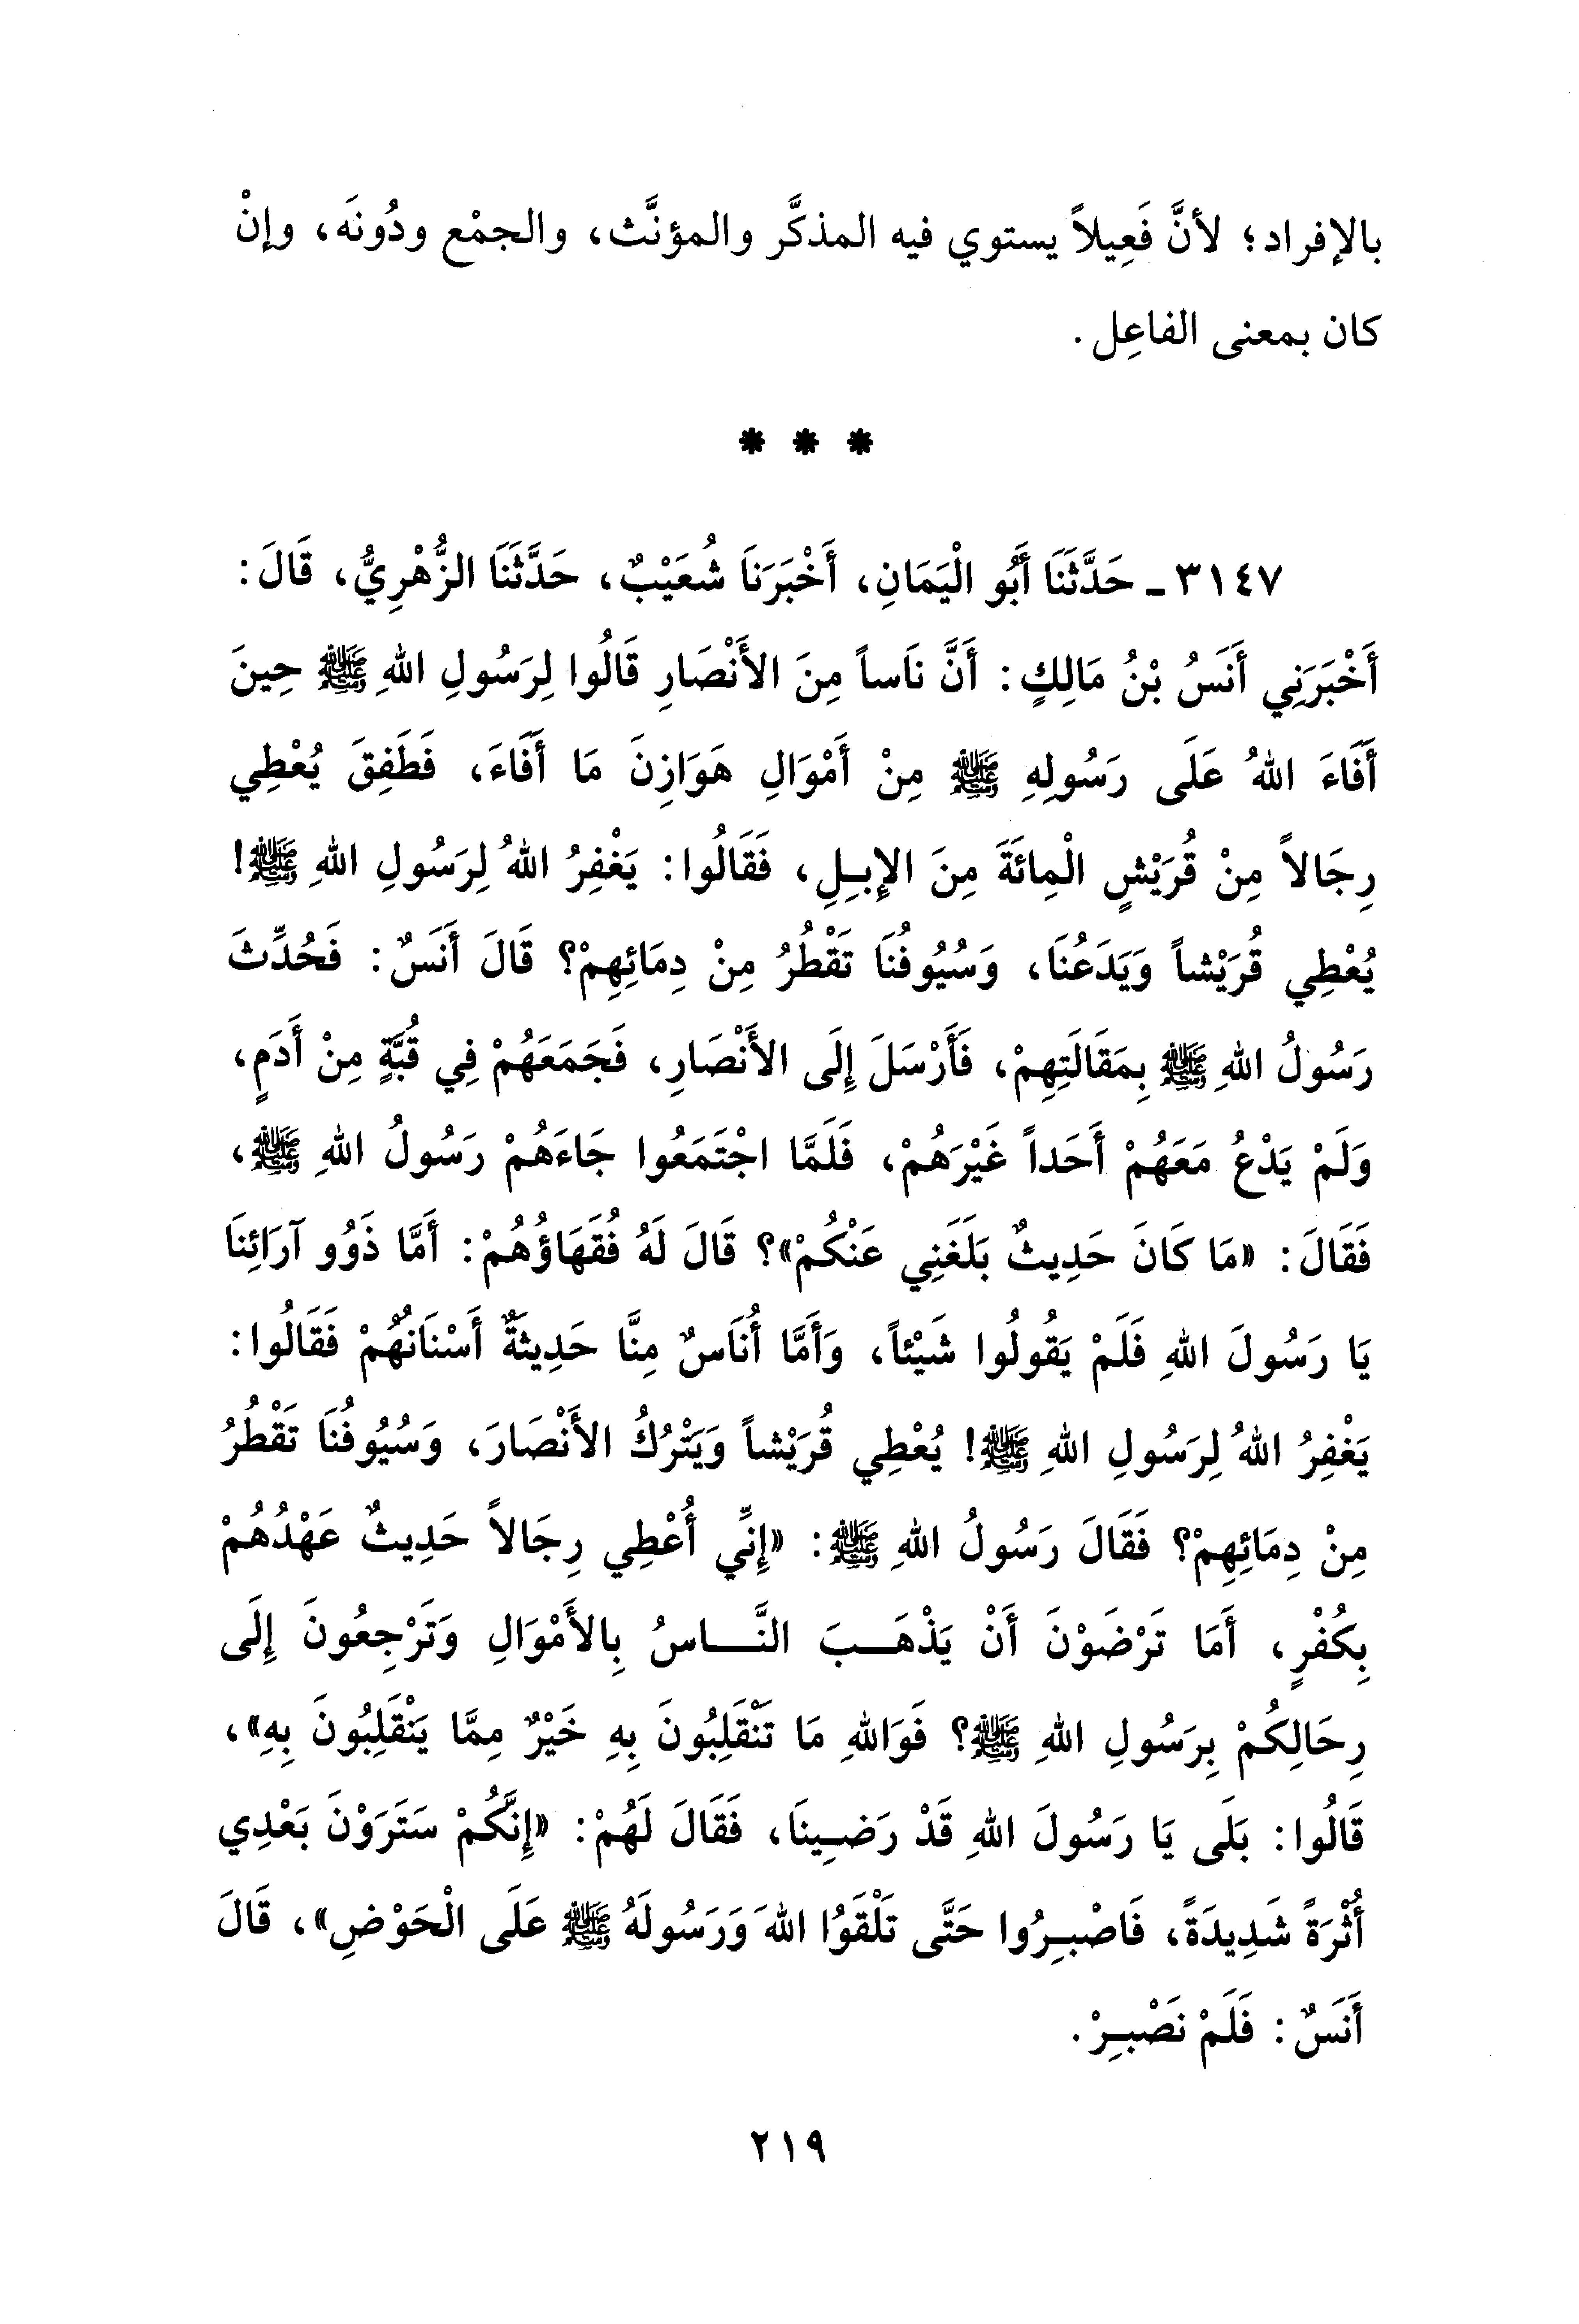 بالإفراد؛ لأنَّ فَعِيلاً يستوي فيه المذكَّر والمؤنَّث، والجمْع ودُونَه، وإنْ
كان بمعنى الفاعِل.
* * *
٣١٤٧ ـ حَدَّثَنَا أَبُو الْيَمَانِ، أَخْبَرَنَا شُعَيْبٌ، حَدَّثَنَا الزُّهْرِيُّ، قَالَ:
أَخْبَرَنِي أَنَسُ بْنُ مَالِكٍ: أَنَّ نَاساً مِنَ الأَنْصَارِ قَالُوا لِرَسُولِ اللهِ ﷺ حِينَ
أَفَاءَ اللهُ عَلَى رَسُولِهِ ﷺ مِنْ أَمْوَالِ هَوَازِنَ مَا أَفَاءَ، فَطَفِقَ يُعْطِي
رِجَالاً مِنْ قُرَيْشٍ الْمِائَةَ مِنَ الإِبِلِ، فَقَالُوا: يَغْفِرُ اللهُ لِرَسُولِ اللهِ ﷺ!
يُعْطِي قُرَيْشاً وَيَدَعُنَا، وَسُيُوفُنَا تَقْطُرُ مِنْ دِمَائِهِمْ؟ قَالَ أَنَسٌ: فَحُدِّثَ
رَسُولُ اللهِ ﷺ بِمَقَالَتِهِمْ، فَأَرْسَلَ إِلَى الأَنْصَارِ، فَجَمَعَهُمْ فِي قُبَّةٍ مِنْ أَدَمٍ،
وَلَمْ يَدْعُ مَعَهُمْ أَحَداً غَيْرَهُمْ، فَلَمَّا اجْتَمَعُوا جَاءَهُمْ رَسُولُ اللهِ ﷺ،
فَقَالَ: «مَا كَانَ حَدِيثٌ بَلَغَنِي عَنْكُمْ»؟ قَالَ لَهُ فُقَهَاؤُهُمْ: أَمَّا ذَوُو آرَائِنَا
يَا رَسُولَ اللهِ فَلَمْ يَقُولُوا شَيْئاً، وَأَمَّا أُنَاسٌ مِنَّا حَدِيثَةٌ أَسْنَانُهُمْ فَقَالُوا:
يَغْفِرُ اللهُ لِرَسُولِ اللهِ ﷺ! يُعْطِي قُرَيْشاً وَيَتْرُكُ الأَنْصَارَ، وَسُيُوفُنَا تَقْطُرُ
مِنْ دِمَائِهِمْ؟ فَقَالَ رَسُولُ اللهِ ﷺ: «إِنِّي أُعْطِي رِجَالاً حَدِيثٌ عَهْدُهُمْ
بِكُفْرٍ، أَمَا تَرْضَوْنَ أَنْ يَذْهَـبَ النَّـاسُ بِالأَمْوَالِ وَتَرْجِعُونَ إِلَى
رِحَالِكُمْ بِرَسُولِ اللهِ ﷺ؟ فَوَاللهِ مَا تَنْقَلِبُونَ بِهِ خَيْرٌ مِمَّا يَنْقَلِبُونَ بِهِ»،
قَالُوا: بَلَى يَا رَسُولَ اللهِ قَدْ رَضِينَا، فَقَالَ لَهُمْ: «إِنَّكُمْ سَتَرَوْنَ بَعْدِي
أُثْرَةً شَدِيدَةً، فَاصْبِرُوا حَتَّى تَلْقَوُا اللهَ وَرَسُولَهُ ﷺ عَلَى الْحَوْضِ»، قَالَ
أَنَسٌ: فَلَمْ نَصْبِرْ.
٢١٩